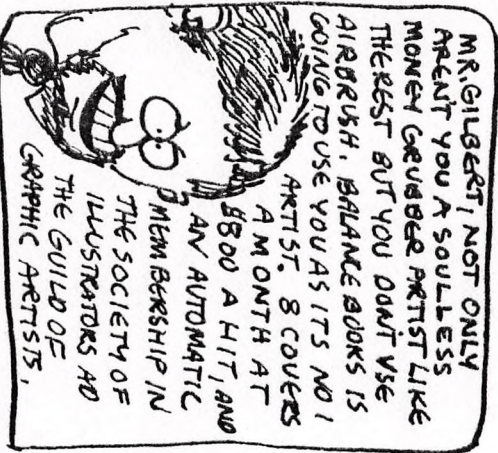 MR. GILBERT, NOT ONLY
AREN'T YOU A SOULLESS
MONEY GRUBBER ARTIST LIKE
THE REST BUT YOU DON'T USE
AIRBRUSH. BALANCE BOOKS IS
GOING TO USE YOU AS ITS NO 1
ARTIST. 8 COVERS
A MONTH AT
$800 A HIT, AND
AN AUTOMATIC
MEMBERSHIP IN
THE SOCIETY OF
ILLUSTRATORS AD
THE GUILD OF
GRAPHIC ARTISTS.